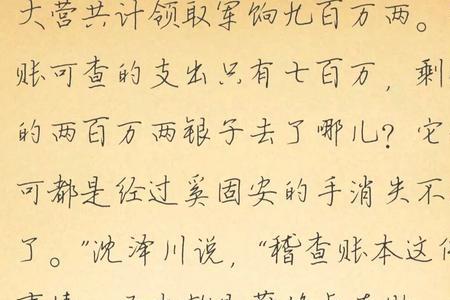 大营共计领取军饷九百万两。
账可查的支出只有七百万，剩
的两百万两银子去了哪儿？它
可都是经过奚固安的手消失不
了。”沈泽川说，“稽查账本这